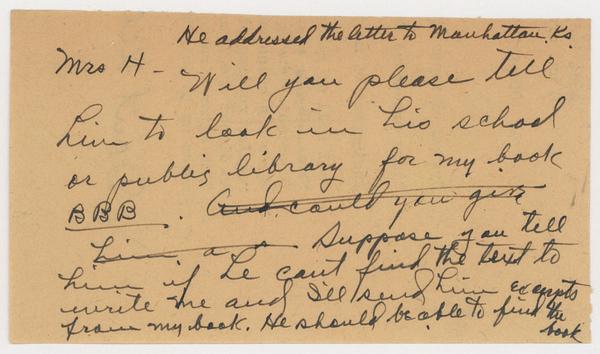 He addressed the letter to Manhattan, Ks.
Mrs H - Will you please tell
him to look in his school
or public library for my book
BBB. And could you give
him a Suppose you tell
him if he cant find the text to
write me and I'll send him excerpts
from my book. He should be able to find the
book